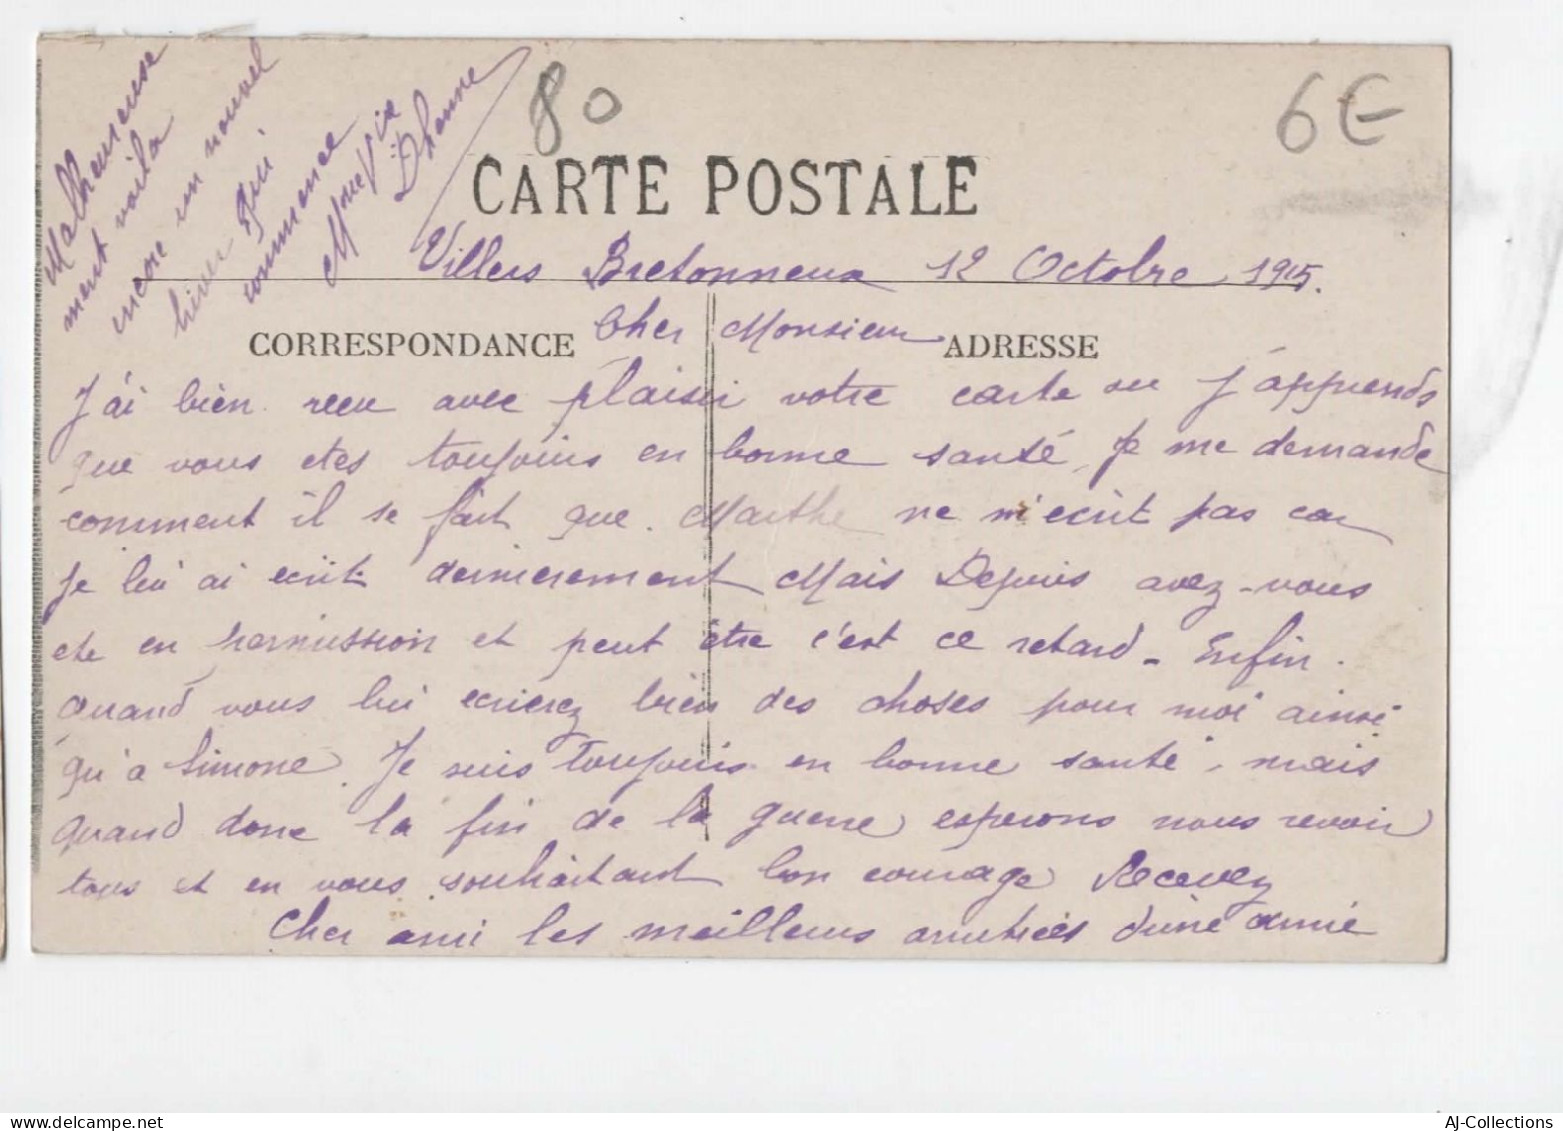 80
6€
CARTE POSTALE
Villers Bretonneux 12 Octobre 1915.
CORRESPONDANCE
Cher Monsieur
ADRESSE
J'ai bien recu avec plaisir votre carte ou j'apprends
que vous etes toujours en bonne santé, Je me demande
comment il se fait que Marthe ne m'ecrit pas car
je lui ai ecrit dernierement Mais Depuis avez-vous
ete en permission et peut être c'est ce retard - Enfin.
quand vous lui ecrierez bien des choses pour moi ainsi
qu'a Simone. Je suis toujours en bonne santé, mais
quand donc la fin de la guerre esperons nous revoir
tous et en vous souhaitant bon courage Recevez
Cher ami les meilleurs amitiés d'une amie
Malheureuse
ment voila
encore un nouvel
hiver qui
commence
Dhonne
AJ-Collections